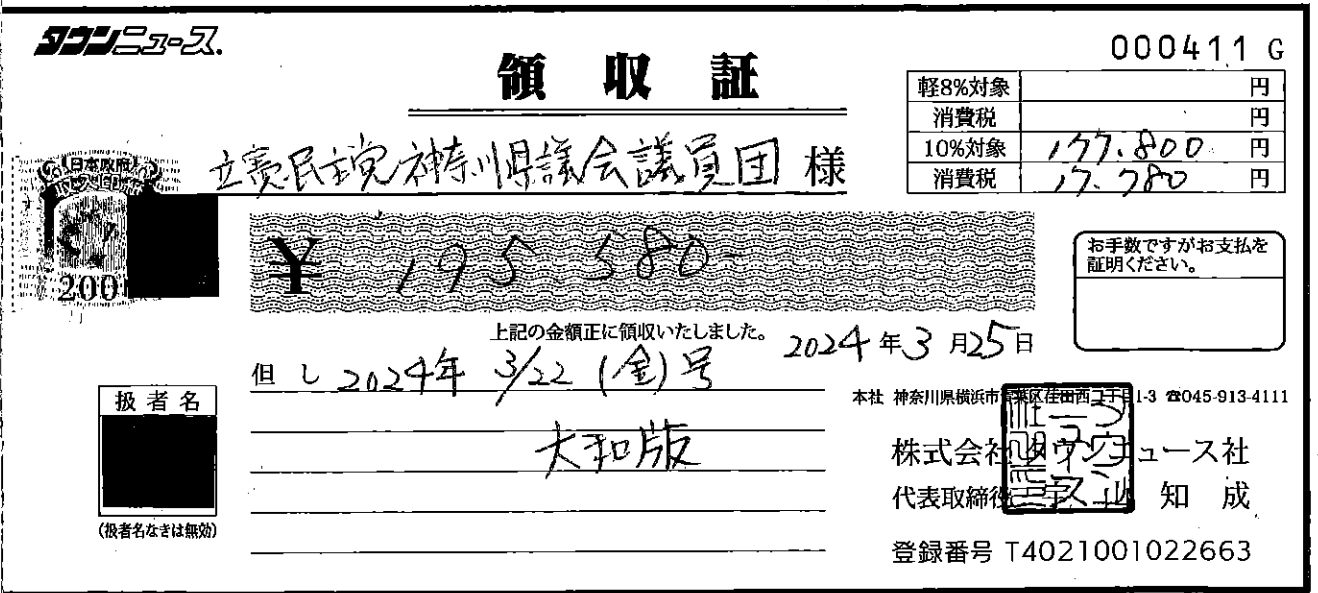 タウンニュース.
000411 G
領収証
軽8%対象 円
消費税 円
10%対象 177.800 円
消費税 17.780 円
立憲民主党神奈川県議会議員団 様
日本政府
200
¥ 195 580-
お手数ですがお支払を
証明ください。
上記の金額正に領収いたしました。 2024年3月25日
但し 2024年 3/22 (金)号
大和版
扱者名
(扱者名なきは無効)
本社 神奈川県横浜市青葉区荏田西二丁目1-3 ☎045-913-4111
株式会社タウンニュース社
代表取締役 宇山 知成
登録番号 T4021001022663